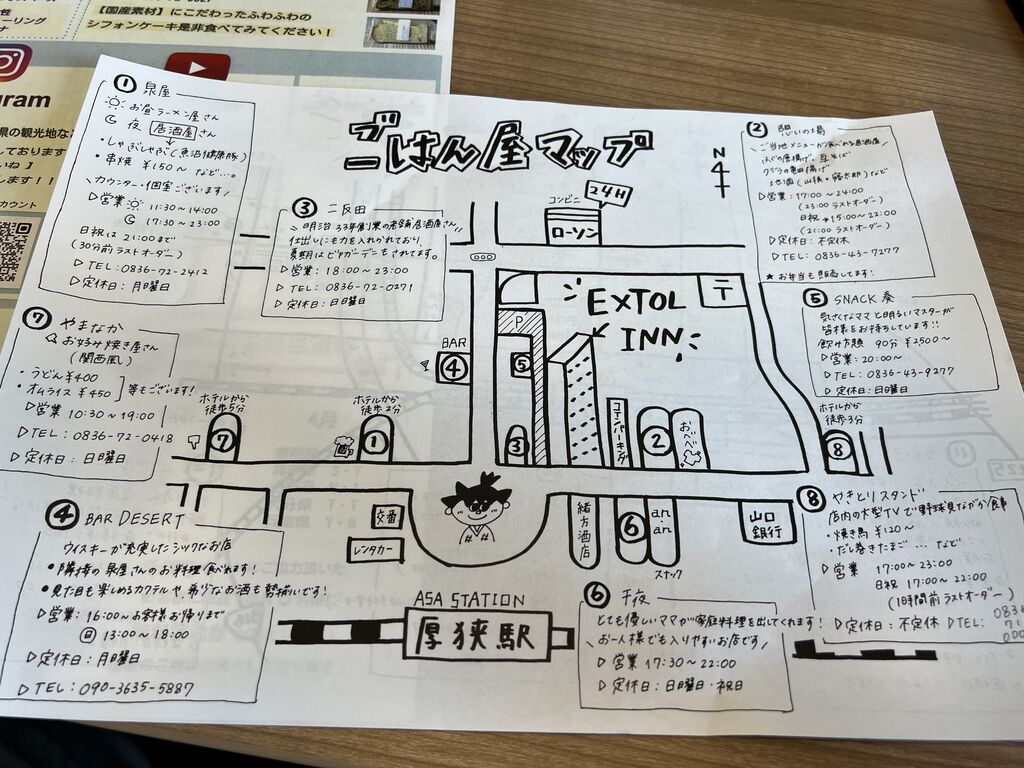 【国産素材】にこだわったふわふわの
シフォンケーキ是非食べてみてください！
ーリング
gram
県の観光地な
しております
いね】
します！！
カウント
ごはん屋マップ
① 泉屋
お昼 ラーメン屋さん
夜 居酒屋さん
・しゃぶしゃぶ(魚治健康豚)
・串焼 ¥150〜 など…。
＼カウンター・個室ございます／
▷営業 11:30〜14:00
17:30〜23:00
日祝は 21:00まで
(30分前ラストオーダー)
▷TEL：0836-72-2412
▷定休日：月曜日
③ 二反田
＼明治33年創業の老舗居酒屋さん／
仕出しにも力を入れられており、
夏期はビアガーデンもされてます。
▷営業：18:00〜23:00
▷TEL：0836-72-0271
▷定休日：日曜日
② 憩いの場
＼ご当地メニューが食べれる居酒屋／
▷営業：17:00〜24:00
(23:00ラストオーダー)
日祝→15:00〜22:00
(21:00ラストオーダー)
▷定休日：不定休
▷TEL：0836-43-7277
★お弁当も販売してます！
⑤ SNACK 奏
気さくなママと明るいマスターが
皆様をお待ちしています!!
飲み方題 90分 ¥2500〜
▷営業：20:00〜
▷TEL：0836-43-9277
▷定休日：日曜日
⑦ やまなか
お好み焼き屋さん
(関西風)
・うどん¥400
・オムライス ¥450
等もございます！
▷営業 10:30〜19:00
▷TEL：0836-72-0418
▷定休日：日曜日
N
コンビニ
24H
ローソン
〒
EXTOL
INN
P
BAR
④
⑤
③
コインパーキング
②
おへべ
ホテルから
徒歩5分
⑦
ホテルから
徒歩2分
①
ホテルから
徒歩3分
⑧
交番
レンタカー
緒方酒店
⑥
an
an
スナック
山口
銀行
ASA STATION
厚狭駅
④ BAR DESERT
ウイスキーが充実したシックなお店
・隣接の泉屋さんのお料理食べれます！
・見た目も楽しめるカクテルや、希少なお酒も勢揃いです！
▷営業：16:00〜お客様お帰りまで
㊐ 13:00〜18:00
▷定休日：月曜日
▷TEL：090-3635-5887
⑥ 千夜
とても優しいママが家庭料理を出してくれます！
お一人様でも入りやすいお店です
▷営業 17:30〜22:00
▷定休日：日曜日・祝日
⑧ やきとりスタンド
店内の大型TVで野球見ながお食事
・焼き鳥 ¥120〜
・だし巻きたまご… など
▷営業 17:00〜23:00
日祝 17:00〜22:00
(1時間前ラストオーダー)
▷定休日：不定休 ▷TEL：